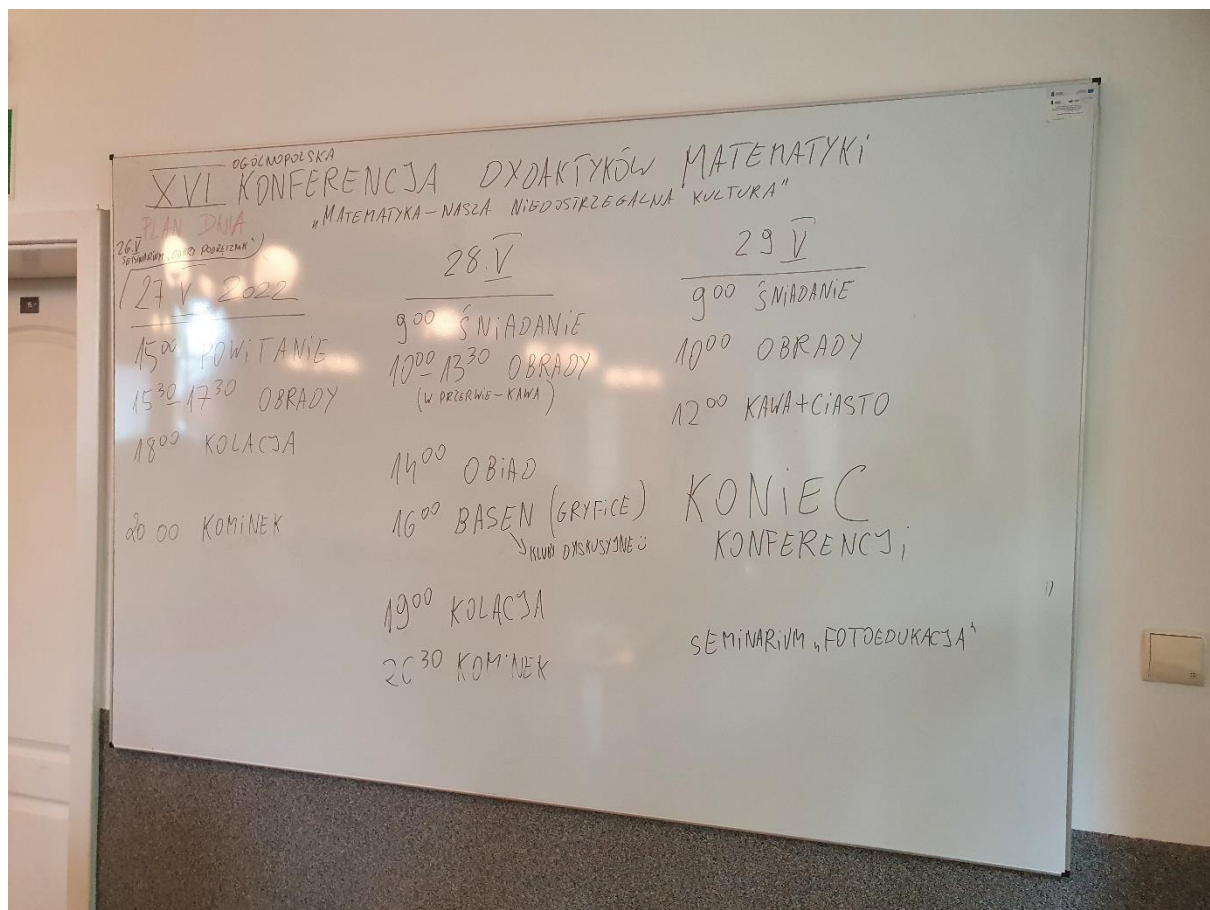 OGÓLNOPOLSKA
XVI KONFERENCJA DYDAKTYKÓW MATEMATYKI
„MATEMATYKA – NASZA NIEDOSTRZEGALNA KULTURA"
PLAN DNIA
26.V
SEMINARIUM „DOBRY PODRĘCZNIK"
27 V 2022
15⁰⁰ POWITANIE
15³⁰–17³⁰ OBRADY
18⁰⁰ KOLACJA
20 00 KOMINEK
28.V
9⁰⁰ ŚNIADANIE
10⁰⁰–13³⁰ OBRADY
(W PRZERWIE – KAWA)
14⁰⁰ OBIAD
16⁰⁰ BASEN (GRYFICE)
↘ KLUBY DYSKUSYJNE
19⁰⁰ KOLACJA
20³⁰ KOMINEK
29 V
9⁰⁰ ŚNIADANIE
10⁰⁰ OBRADY
12⁰⁰ KAWA + CIASTO
KONIEC
KONFERENCJI
SEMINARIUM „FOTOEDUKACJA"